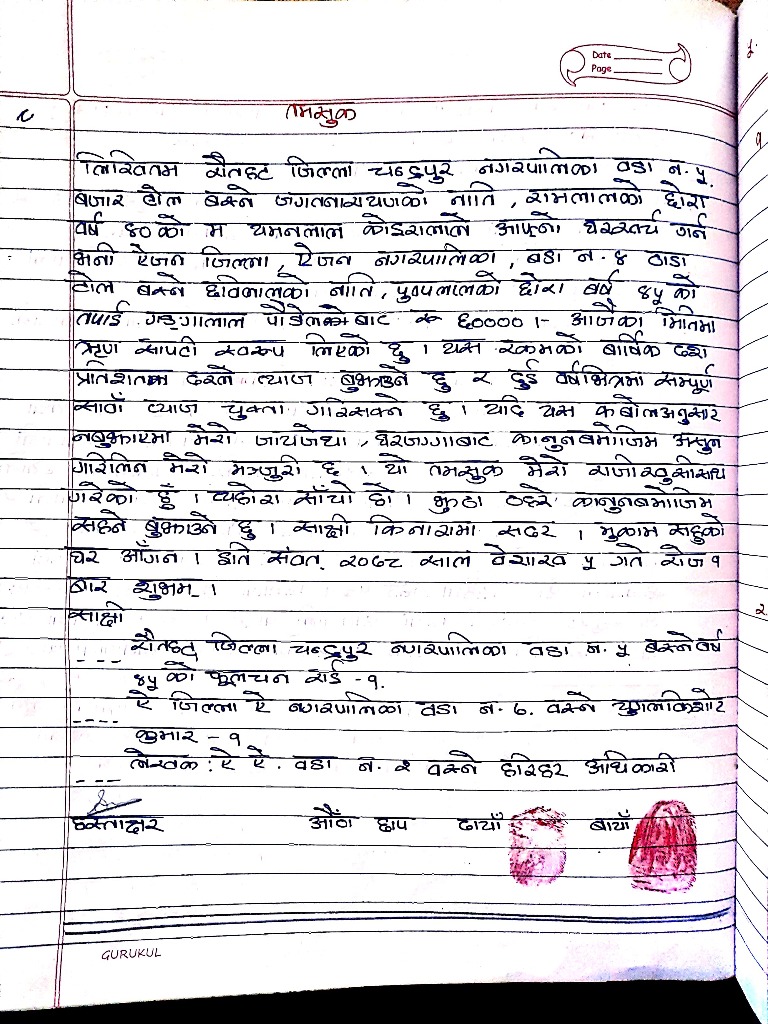 Date
Page
तमसुक
लिखितम रौतहट जिल्ला चन्द्रपुर नगरपालिका वडा न. ५
बजार टोल बस्ने जगतनारायणको नाति , रामलालको छोरा
वर्ष ४० को म यमनलाल कोइरालाले आफ्नो घरखर्च गर्न
भनी ऐजन जिल्ला, ऐजन नगरपालिका , वडा न. ४ ठाडा
टोल बस्ने छविलालको नाति, पुष्पलालको छोरा बर्ष ४५ को
तपाई गङ्गालाल पौडेलको बाट रू ६०००० ।- आजैका मितिमा
ऋण सापटी स्वरूप लिएको छु । यस रकमको बार्षिक दश
प्रतिशतका दरले व्याज बुझाउने छु र दुई वर्षभित्रमा सम्पूर्ण
सावाँ व्याज चुक्ता गरिसक्ने छु । यदि यस कबोलअनुसार
नबुझाएमा मेरो जायजेथा , घरजग्गाबाट कानुनबमोजिम असुल
गरिलिन मेरो मञ्जुरी छ । यो तमसुक मेरो राजीखुसीसाथ
गरेको हुँ । व्यहोरा साँचो हो । झुठा ठहरे कानुनबमोजिम
सहने बुझाउने छु । साक्षी किनारामा सदर । मुकाम साहुको
घर आँगन । इति संवत् २०७८ साल वैशाख ५ गते रोज १
बार शुभम् ।
साक्षी
रौतहट जिल्ला चन्द्रपुर नगरपालिका वडा न. ५ बस्ने वर्ष
४५ को फूलचन राई - १.
ऐ जिल्ला ऐ नगरपालिका वडा न. ७. वस्ने युगलकिशोर
कुमार - १
लेखक : ऐ ऐ. वडा न. २ वस्ने हरिहर अधिकारी
हस्ताक्षर औंठा छाप दायाँ बायाँ
GURUKUL